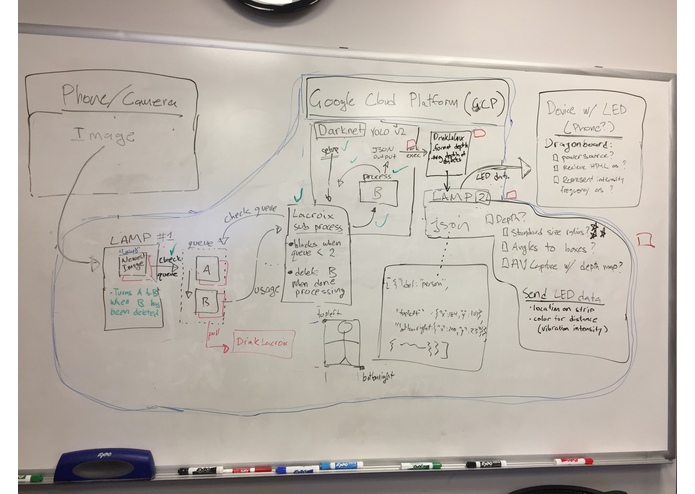 Phone/Camera
Image
Google Cloud Platform (GCP)
Darknet YOLO V2
setup
JSON
output
exec
process
B
DrinkLacroix
format depth
LED data
Device w/ LED
(Phone?)
Dragonboard:
power source?
Receive HTML as?
Represent intensity
frequency as?
LAMP #1
Newest
Image
check
queue
• Turns A to B
when B has
been deleted
queue
A
B
check queue
usage
pull
DrinkLacroix
Lacroix
sub process
• blocks when
queue < 2
• delete B
when done
processing
LAMP 2
json
Depth?
Standard size ratios?
Angles to boxes?
AV Capture w/ depth map?
Send LED data
• location on strip
• color for distance
(vibration intensity)
topleft
bottomright
"person",
"topleft"